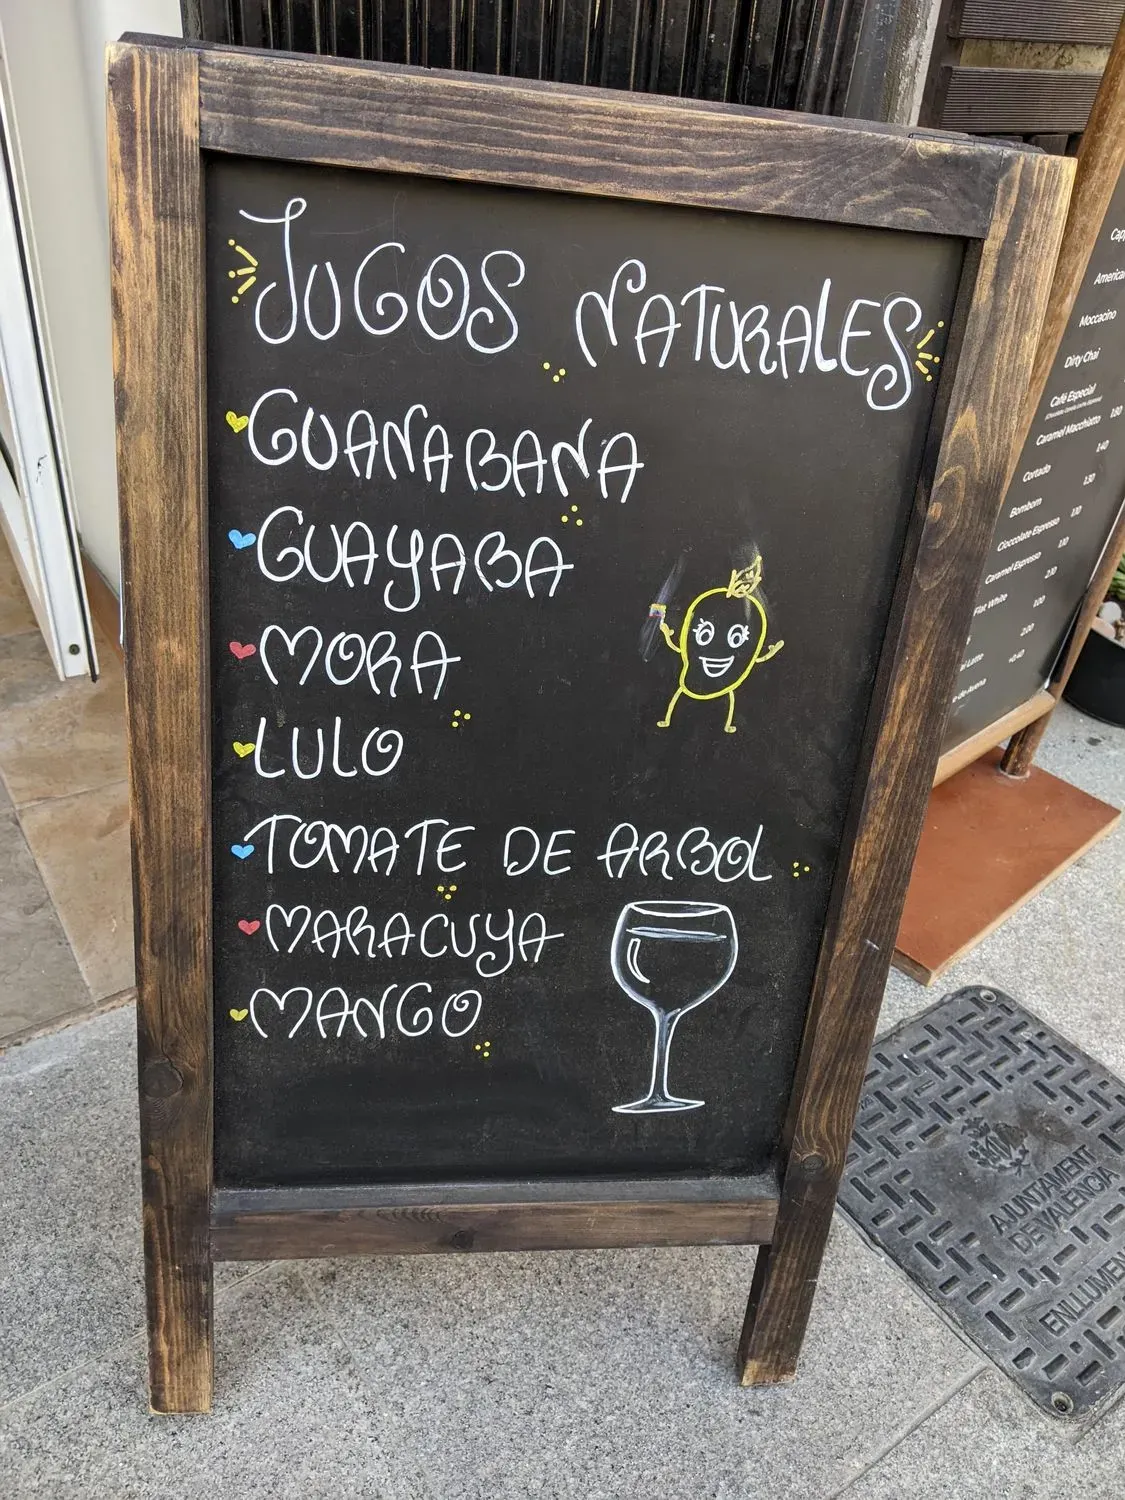 JUGOS NATURALES
GUANABANA
GUAYABA
MORA
LULO
TOMATE DE ARBOL
MARACUYA
MANGO
Moccacino
Dirty Chai
Café Especial 1.80
Caramel Macchiatto 1.40
Cortado 1.30
Bombom 1.10
Cioccolate Espresso 1.10
Caramel Espresso 2.10
Flat White 1.00
AJUNTAMENT
DE VALENCIA